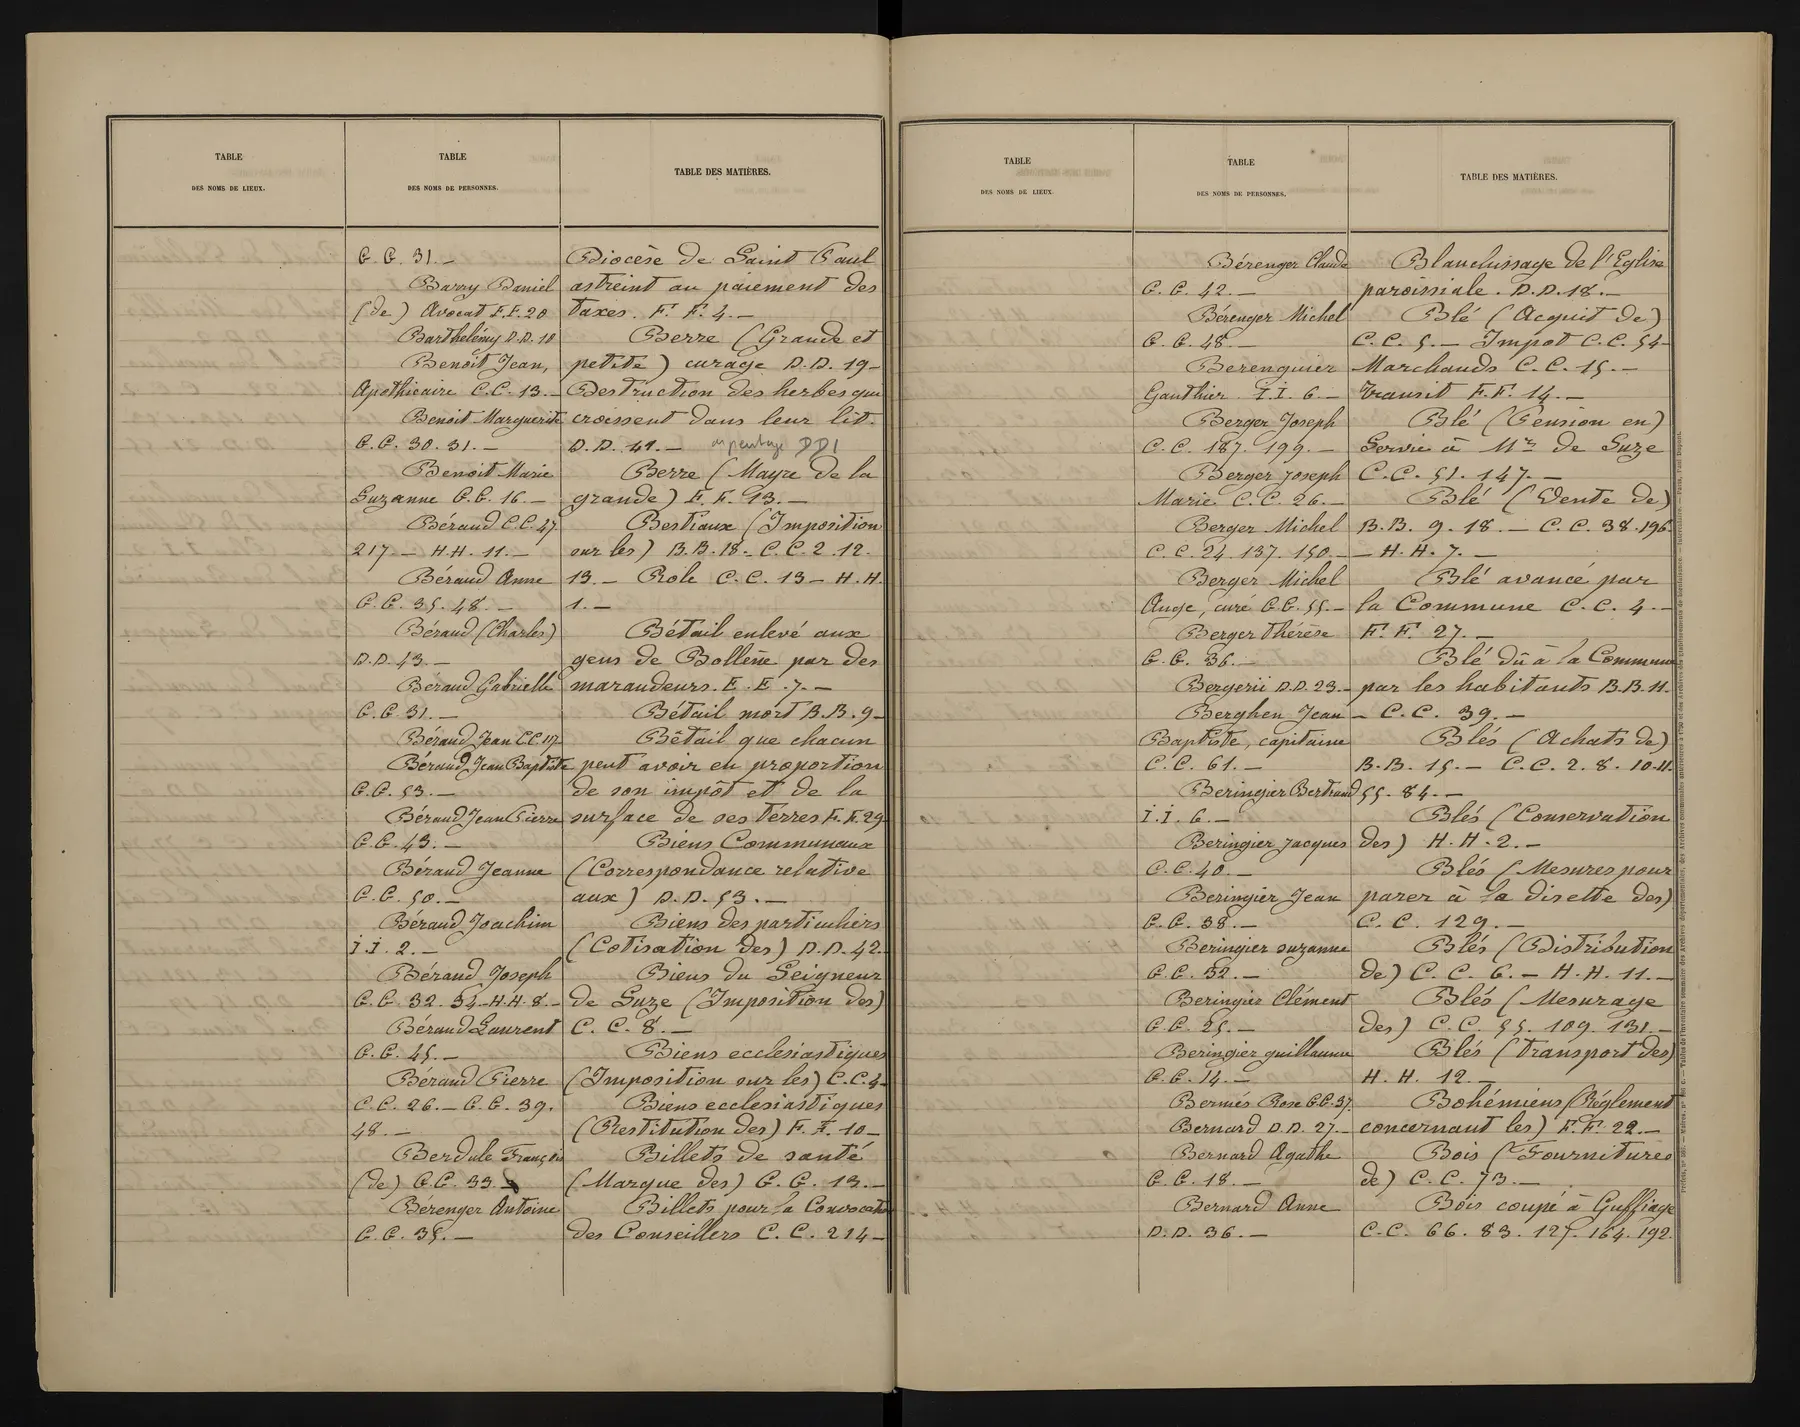 TABLE
DES NOMS DE LIEUX.
TABLE
DES NOMS DE PERSONNES.
G. G. 31. —
Barry Daniel
(de) Avocat F.F. 20
Barthelémy D.D. 10
Benoit Jean,
Apothicaire C.C. 13. —
Benoit Marguerite
G.G. 30. 31. —
Benoit Marie
Suzanne G.G. 16. —
Béraud C.C. 47
217. — H.H. 11. —
Béraud Anne
G.G. 35. 48. —
Béraud (Charles)
D.D. 43. —
Beraud Gabrielle
G.G. 31. —
Béraud Jean C.C. 117
Béraud Jean Baptiste
G.G. 53. —
Béraud Jean Pierre
G.G. 43. —
Béraud Jeanne
G.G. 50. —
Béraud Joachim
I.I. 2. —
Béraud Joseph
G.G. 32. 54. — H.H. 8. —
Béraud Laurent
G.G. 45. —
Béraud Pierre
C.C. 26. — G.G. 39.
48. —
Berdule François
(de) G.G. 33. —
Bérenger Antoine
G.G. 35. —
TABLE DES MATIÈRES.
Diocèse de Saint Paul
astreint au paiement des
taxes. F. F. 4. —
Berre (Grande et
petite) curage D.D. 19 —
Destruction des herbes qui
croissent dans leur lit.
D.D. 41. — arpentage DD1
Berre (Mayre de la
grande) F. F. 13. —
Bestiaux (Imposition
sur les) B.B. 18. — C.C. 2. 12.
13. — Role C.C. 13 — H.H.
1. —
Bétail enlevé aux
gens de Bollène par des
maraudeurs. E. E. 7. —
Bétail mort B.B. 9 —
Bétail que chacun
peut avoir en proportion
de son impôt et de la
surface de ses terres F.F. 29
Biens Communaux
(Correspondance relative
aux) D.D. 53. —
Biens des particuliers
(Cotisation des) D.D. 42. —
Biens du Seigneur
de Suze (Imposition des)
C. C. 8. —
Biens ecclesiastiques
(Imposition sur les) C.C. 4 —
Biens ecclesiastiques
(Restitution des) F. F. 10 —
Billets de santé
(Marque des) G. G. 13. —
Billets pour la
des Conseillers C. C. 214 —
TABLE
DES NOMS DE LIEUX.
TABLE
DES NOMS DE PERSONNES.
Bérenger Claude
G. G. 42. —
Bérenger Michel
G. G. 48. —
Berenguier
Gauthier I.I. 6 —
Berger Joseph
C.C. 187. 199. —
Berger Joseph
Marie C.C. 26. —
Berger Michel
C.C. 24. 137. 150. —
Berger Michel
Ange, curé G.G. 55. —
Berger Thérèse
G. G. 36. —
Bergerii D.D. 23. —
Berghen Jean
Baptiste, capitaine
C. C. 61. —
Beringier Bertrand
I.I. 6. —
Beringier Jacques
C.C. 40. —
Beringier Jean
G.G. 38. —
Beringier Suzanne
G.G. 52. —
Beringier Clément
G.G. 25. —
Beringier Guillaume
G.G. 14. —
Bermés Rose G.G. 37.
Bernard D.D. 27. —
Bernard Agathe
G.G. 18. —
Bernard Anne
D.D. 36. —
TABLE DES MATIÈRES.
Blanchissage de l'Eglise
paroissiale. D.D. 18. —
Blé (Acquit de)
C.C. 5. — Impot C.C. 54
Marchands C.C. 15. —
transit F.F. 14. —
Blé (Pension en)
Servie à Mr de Suze
C.C. 51. 147. —
Blé (Vente de)
B.B. 9. 18. — C.C. 38. 196.
— H.H. 7. —
Blé avancé par
la Commune C.C. 4. —
F. F. 27. —
Blé dû à la Commune
par les habitants B.B. 11.
— C.C. 39. —
Blés (Achats de)
B.B. 15. — C.C. 2. 8. 10. 11.
55. 84. —
Blés (Conservation
des) H. H. 2. —
Blés (Mesures pour
parer à la disette des)
C. C. 129. —
Blés (Distribution
de) C. C. 6. — H.H. 11. —
Blés (Mesurage
des) C.C. 55. 109. 131. —
Blés (Transport des)
H. H. 12. —
Bohémiens (Réglement
concernant les) F.F. 22. —
Bois (Fournitures
de) C. C. 73. —
Bois coupé à Guffiage
C.C. 66. 83. 127. 164. 192.